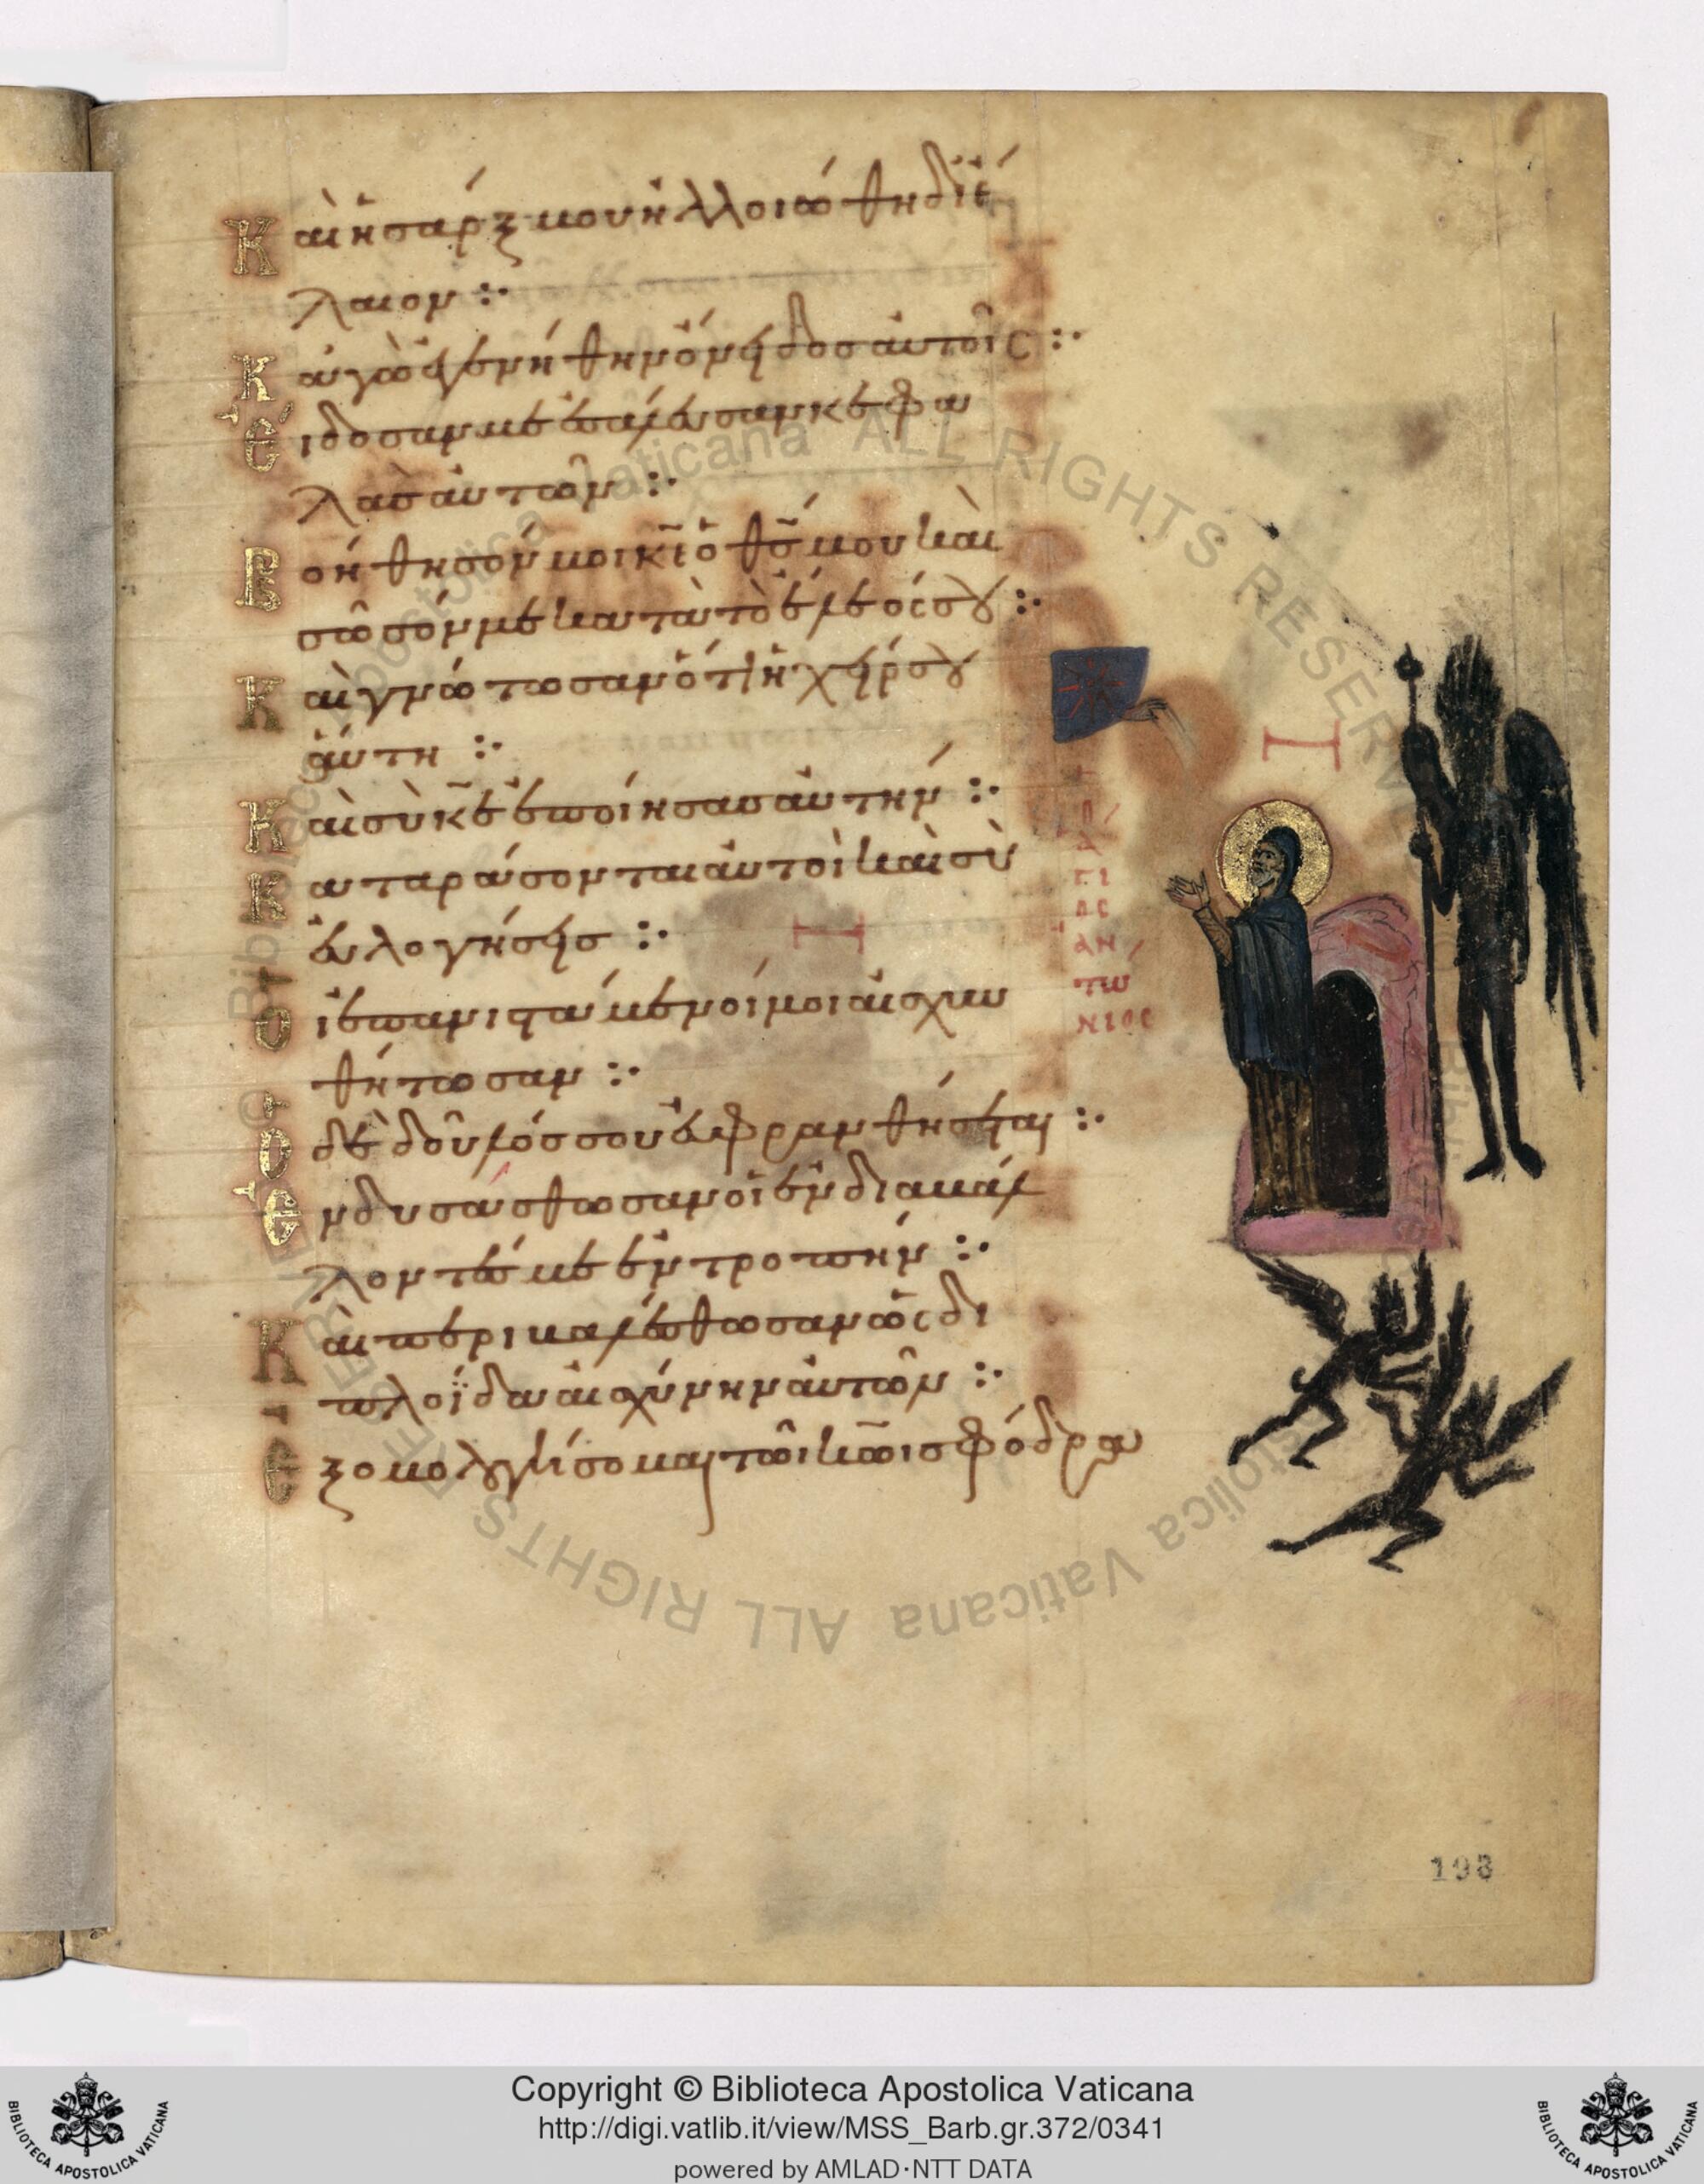 Καὶ ἡ σάρξ μου ἠλλοιώθη δι' ἔ
λαιον :·
Κἀγὼ ἐγενήθην ὄνειδος αὐτοῖς :·
Εἴδοσάν με ἐσάλευσαν κεφα
λὰς αὐτῶν :·
Βοήθησόν μοι κ̅ε̅ ὁ θ̅ς̅ μου καὶ
σῶσόν με κατὰ τὸ ἔλεός σου :·
Καὶ γνώτωσαν ὅτι ἡ χείρ σου
αὕτη :·
Καὶ σὺ κ̅ε̅ ἐποίησας αὐτήν :·
Καταράσονται αὐτοὶ καὶ σὺ
εὐλογήσεις :·
Οἱ ἐπανιστάμενοί μοι αἰσχυν
θήτωσαν :·
Ὁ δὲ δοῦλός σου εὐφρανθήσεται :·
Ἐνδυσάσθωσαν οἱ ἐνδιαβάλ
λοντές με ἐντροπήν :·
Καὶ περιβαλέσθωσαν ὡς δι
πλοΐδα αἰσχύνην αὐτῶν :·
Ἐξομολογήσομαι τῶι κ̅ω̅ι σφόδρα
Ο
Α
ΓΙ
ΟC
ΑΝ
ΤΩ
ΝΙΟC
193
Copyright © Biblioteca Apostolica Vaticana
http://digi.vatlib.it/view/MSS_Barb.gr.372/0341
powered by AMLAD·NTT DATA
BIBLIOTECA APOSTOLICA VATICANA
BIBLIOTECA APOSTOLICA VATICANA
Biblioteca Apostolica Vaticana ALL RIGHTS RESERVED
Biblioteca Apostolica Vaticana ALL RIGHTS RESERVED